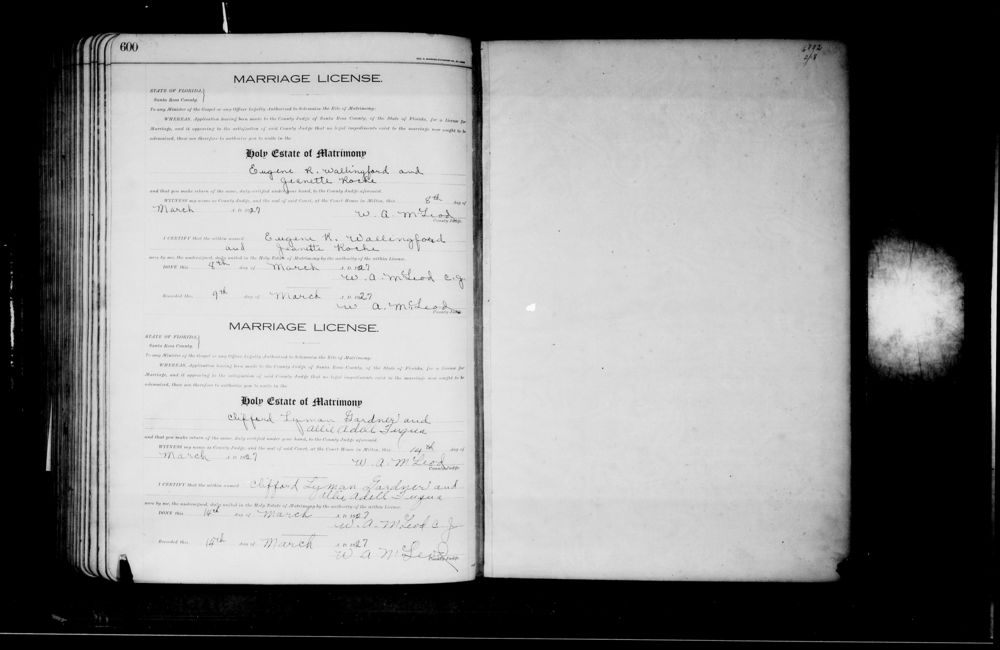 600
MARRIAGE LICENSE.
STATE OF FLORIDA,
Santa Rosa County.
To any Minister of the Gospel or any Officer Legally Authorized to Solemnize the Rite of Matrimony:
WHEREAS, Application having been made to the County Judge of Santa Rosa County, of the State of Florida, for a License for
Marriage, and it appearing to the satisfaction of said County Judge that no legal impediments exist to the marriage now sought to be
solemnized, these are therefore to authorize you to unite in the
Holy Estate of Matrimony
Eugene R. Wallingford and
Jeanette Roche
and that you make return of the same, duly certified under your hand, to the County Judge aforesaid.
WITNESS my name as County Judge, and the seal of said Court, at the Court House in Milton, this 8th day of
March A. D. 1927
W. A. McLeod
County Judge.
I CERTIFY that the within named Eugene R. Wallingford
and Jeanette Roche
were by me, the undersigned, duly united in the Holy Estate of Matrimony by the authority of the within License.
DONE this 8th day of March A. D. 1927
W. A. McLeod C. J.
Recorded this 9th day of March A. D. 1927
W A. McLeod
County Judge.
MARRIAGE LICENSE.
STATE OF FLORIDA,
Santa Rosa County.
To any Minister of the Gospel or any Officer Legally Authorized to Solemnize the Rite of Matrimony:
WHEREAS, Application having been made to the County Judge of Santa Rosa County, of the State of Florida, for a License for
Marriage, and it appearing to the satisfaction of said County Judge that no legal impediments exist to the marriage now sought to be
solemnized, these are therefore to authorize you to unite in the
Holy Estate of Matrimony
Clifford Lyman Gardner and
Allie Adell Fuqua
and that you make return of the same, duly certified under your hand, to the County Judge aforesaid.
WITNESS my name as County Judge, and the seal of said Court, at the Court House in Milton, this 14th day of
March A. D. 1927
W. A. McLeod
County Judge.
I CERTIFY that the within named Clifford Lyman Gardner and
Allie Adell Fuqua
were by me, the undersigned, duly united in the Holy Estate of Matrimony by the authority of the within License.
DONE this 14th day of March A. D. 1927
W. A. McLeod C. J.
Recorded this 14th day of March A. D. 1927
W A McLeod
County Judge.